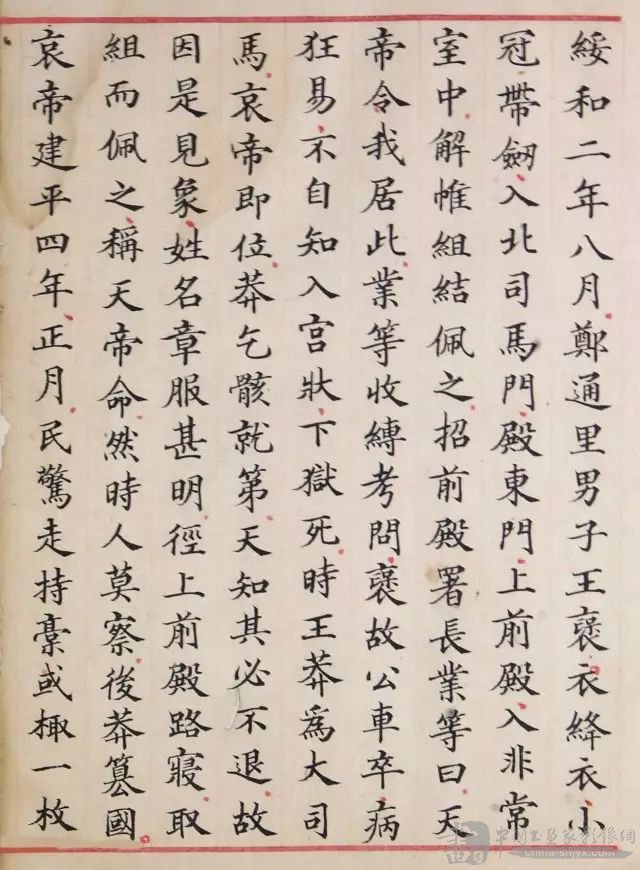 綏和二年八月鄭通里男子王襃衣絳衣小
冠帶劒入北司馬門殿東門上前殿入非常
室中解帷組結佩之招前殿署長業等曰天
帝令我居此業等收縛考問襃故公車卒病
狂易不自知入宮狀下獄死時王莽爲大司
馬哀帝即位莽乞骸就第天知其必不退故
因是見象姓名章服甚明徑上前殿路寢取
組而佩之稱天帝命然時人莫察後莽篡國
哀帝建平四年正月民驚走持稾或棷一枚
中国书画家影像网
china-shjyx.com